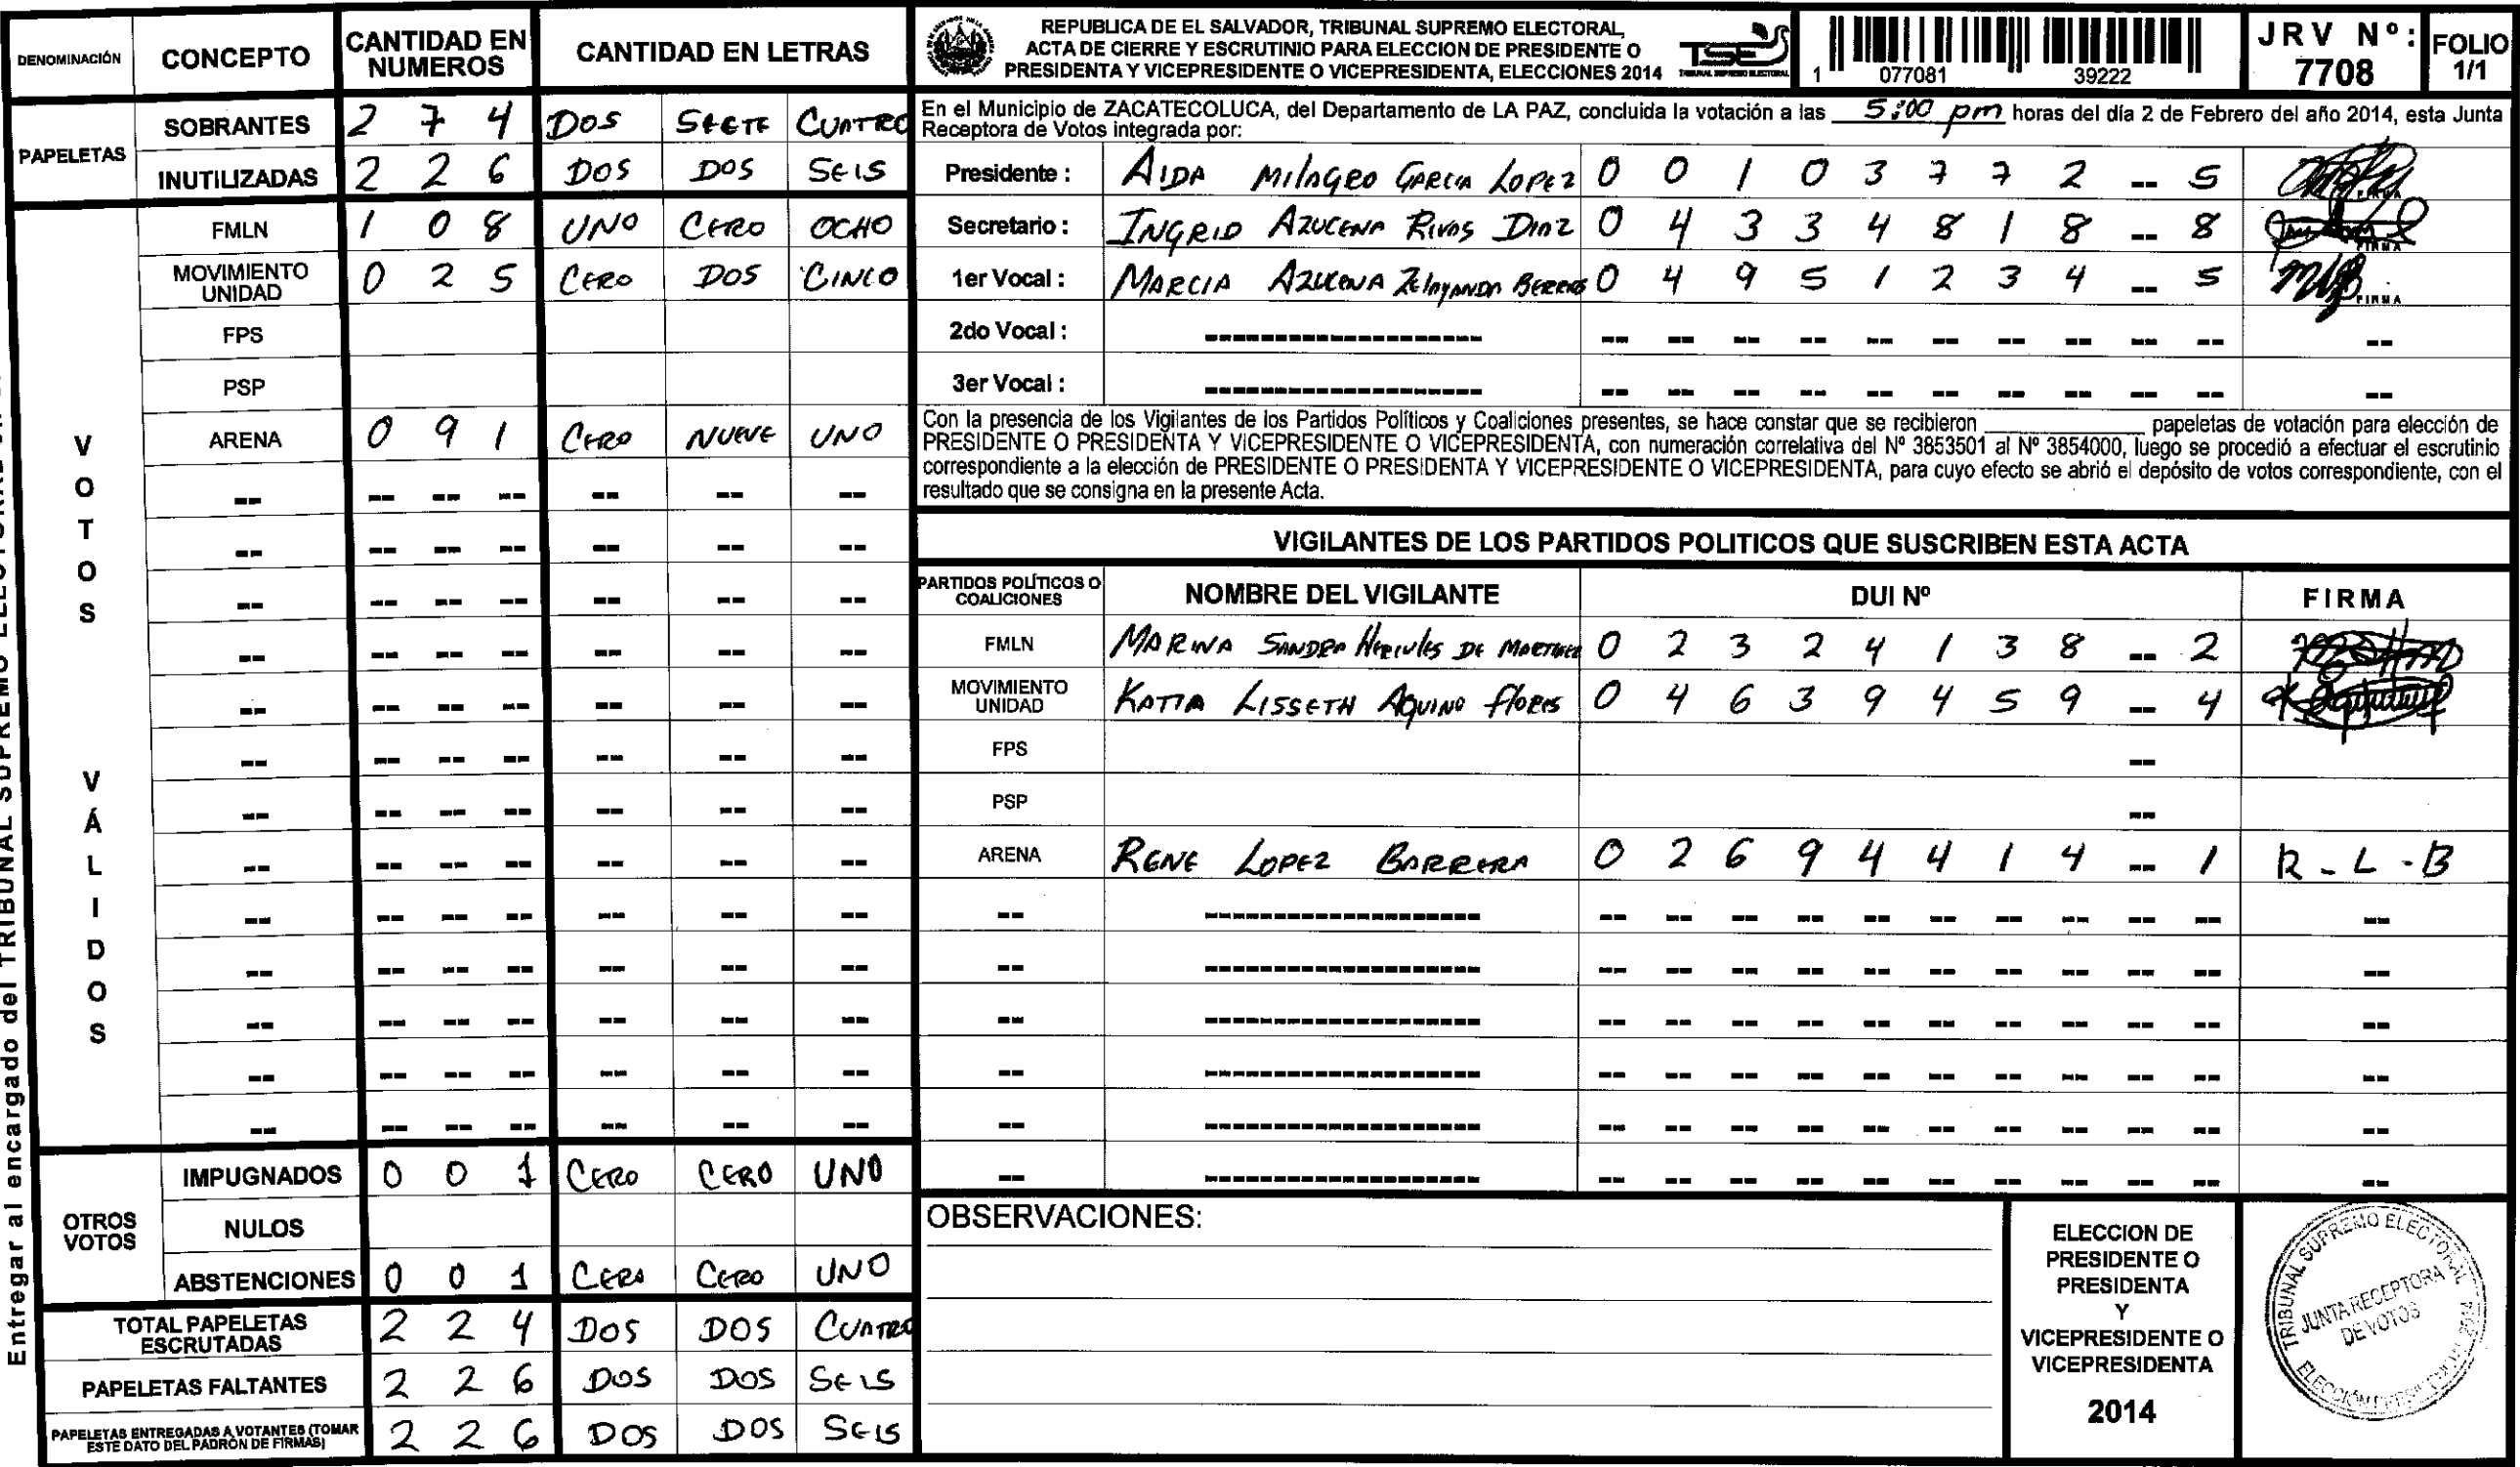 DENOMINACIÓN CONCEPTO CANTIDAD EN NUMEROS CANTIDAD EN LETRAS
PAPELETAS
SOBRANTES 2 7 4 DOS SEETE CUATRO
INUTILIZADAS 2 2 6 DOS DOS SEIS
VOTOS VÁLIDOS
FMLN 1 0 8 UNO CERO OCHO
MOVIMIENTO UNIDAD 0 2 5 CERO DOS CINCO
FPS
PSP
ARENA 0 9 1 CERO NUEVE UNO
OTROS VOTOS
IMPUGNADOS 0 0 1 CERO CERO UNO
NULOS
ABSTENCIONES 0 0 1 CERO CERO UNO
TOTAL PAPELETAS ESCRUTADAS 2 2 4 DOS DOS CUATRO
PAPELETAS FALTANTES 2 2 6 DOS DOS SEIS
PAPELETAS ENTREGADAS A VOTANTES (TOMAR ESTE DATO DEL PADRÓN DE FIRMAS) 2 2 6 DOS DOS SEIS
Entregar al encargado del TRIBUNAL SUPREMO
REPUBLICA DE EL SALVADOR, TRIBUNAL SUPREMO ELECTORAL,
ACTA DE CIERRE Y ESCRUTINIO PARA ELECCION DE PRESIDENTE O
PRESIDENTA Y VICEPRESIDENTE O VICEPRESIDENTA, ELECCIONES 2014
TSE
TRIBUNAL SUPREMO ELECTORAL
1 077081 39222
JRV Nº: 7708
FOLIO 1/1
En el Municipio de ZACATECOLUCA, del Departamento de LA PAZ, concluida la votación a las 5:00 pm horas del día 2 de Febrero del año 2014, esta Junta
Receptora de Votos integrada por:
Presidente : AIDA MILAGRO GARCIA LOPEZ 0 0 1 0 3 7 7 2 -- 5 FIRMA
Secretario : INGRID AZUCENA RIVAS DIAZ 0 4 3 3 4 8 1 8 -- 8 FIRMA
1er Vocal : MARCIA AZUCENA 0 4 9 5 1 2 3 4 -- 5 FIRMA
2do Vocal : --
3er Vocal : --
Con la presencia de los Vigilantes de los Partidos Políticos y Coaliciones presentes, se hace constar que se recibieron ________ papeletas de votación para elección de
PRESIDENTE O PRESIDENTA Y VICEPRESIDENTE O VICEPRESIDENTA, con numeración correlativa del Nº 3853501 al Nº 3854000, luego se procedió a efectuar el escrutinio
correspondiente a la elección de PRESIDENTE O PRESIDENTA Y VICEPRESIDENTE O VICEPRESIDENTA, para cuyo efecto se abrió el depósito de votos correspondiente, con el
resultado que se consigna en la presente Acta.
VIGILANTES DE LOS PARTIDOS POLITICOS QUE SUSCRIBEN ESTA ACTA
PARTIDOS POLÍTICOS O COALICIONES NOMBRE DEL VIGILANTE DUI Nº FIRMA
FMLN MARINA SANDRA HERCULES DE MARTINEZ 0 2 3 2 4 1 3 8 -- 2
MOVIMIENTO UNIDAD KATIA LISSETH AQUINO FLORES 0 4 6 3 9 4 5 9 -- 4
FPS --
PSP --
ARENA RENE LOPEZ BARRERA 0 2 6 9 4 4 1 4 -- 1 R - L - B
OBSERVACIONES:
ELECCION DE
PRESIDENTE O
PRESIDENTA
Y
VICEPRESIDENTE O
VICEPRESIDENTA
2014
TRIBUNAL SUPREMO ELECTORAL
JUNTA RECEPTORA
DE VOTOS